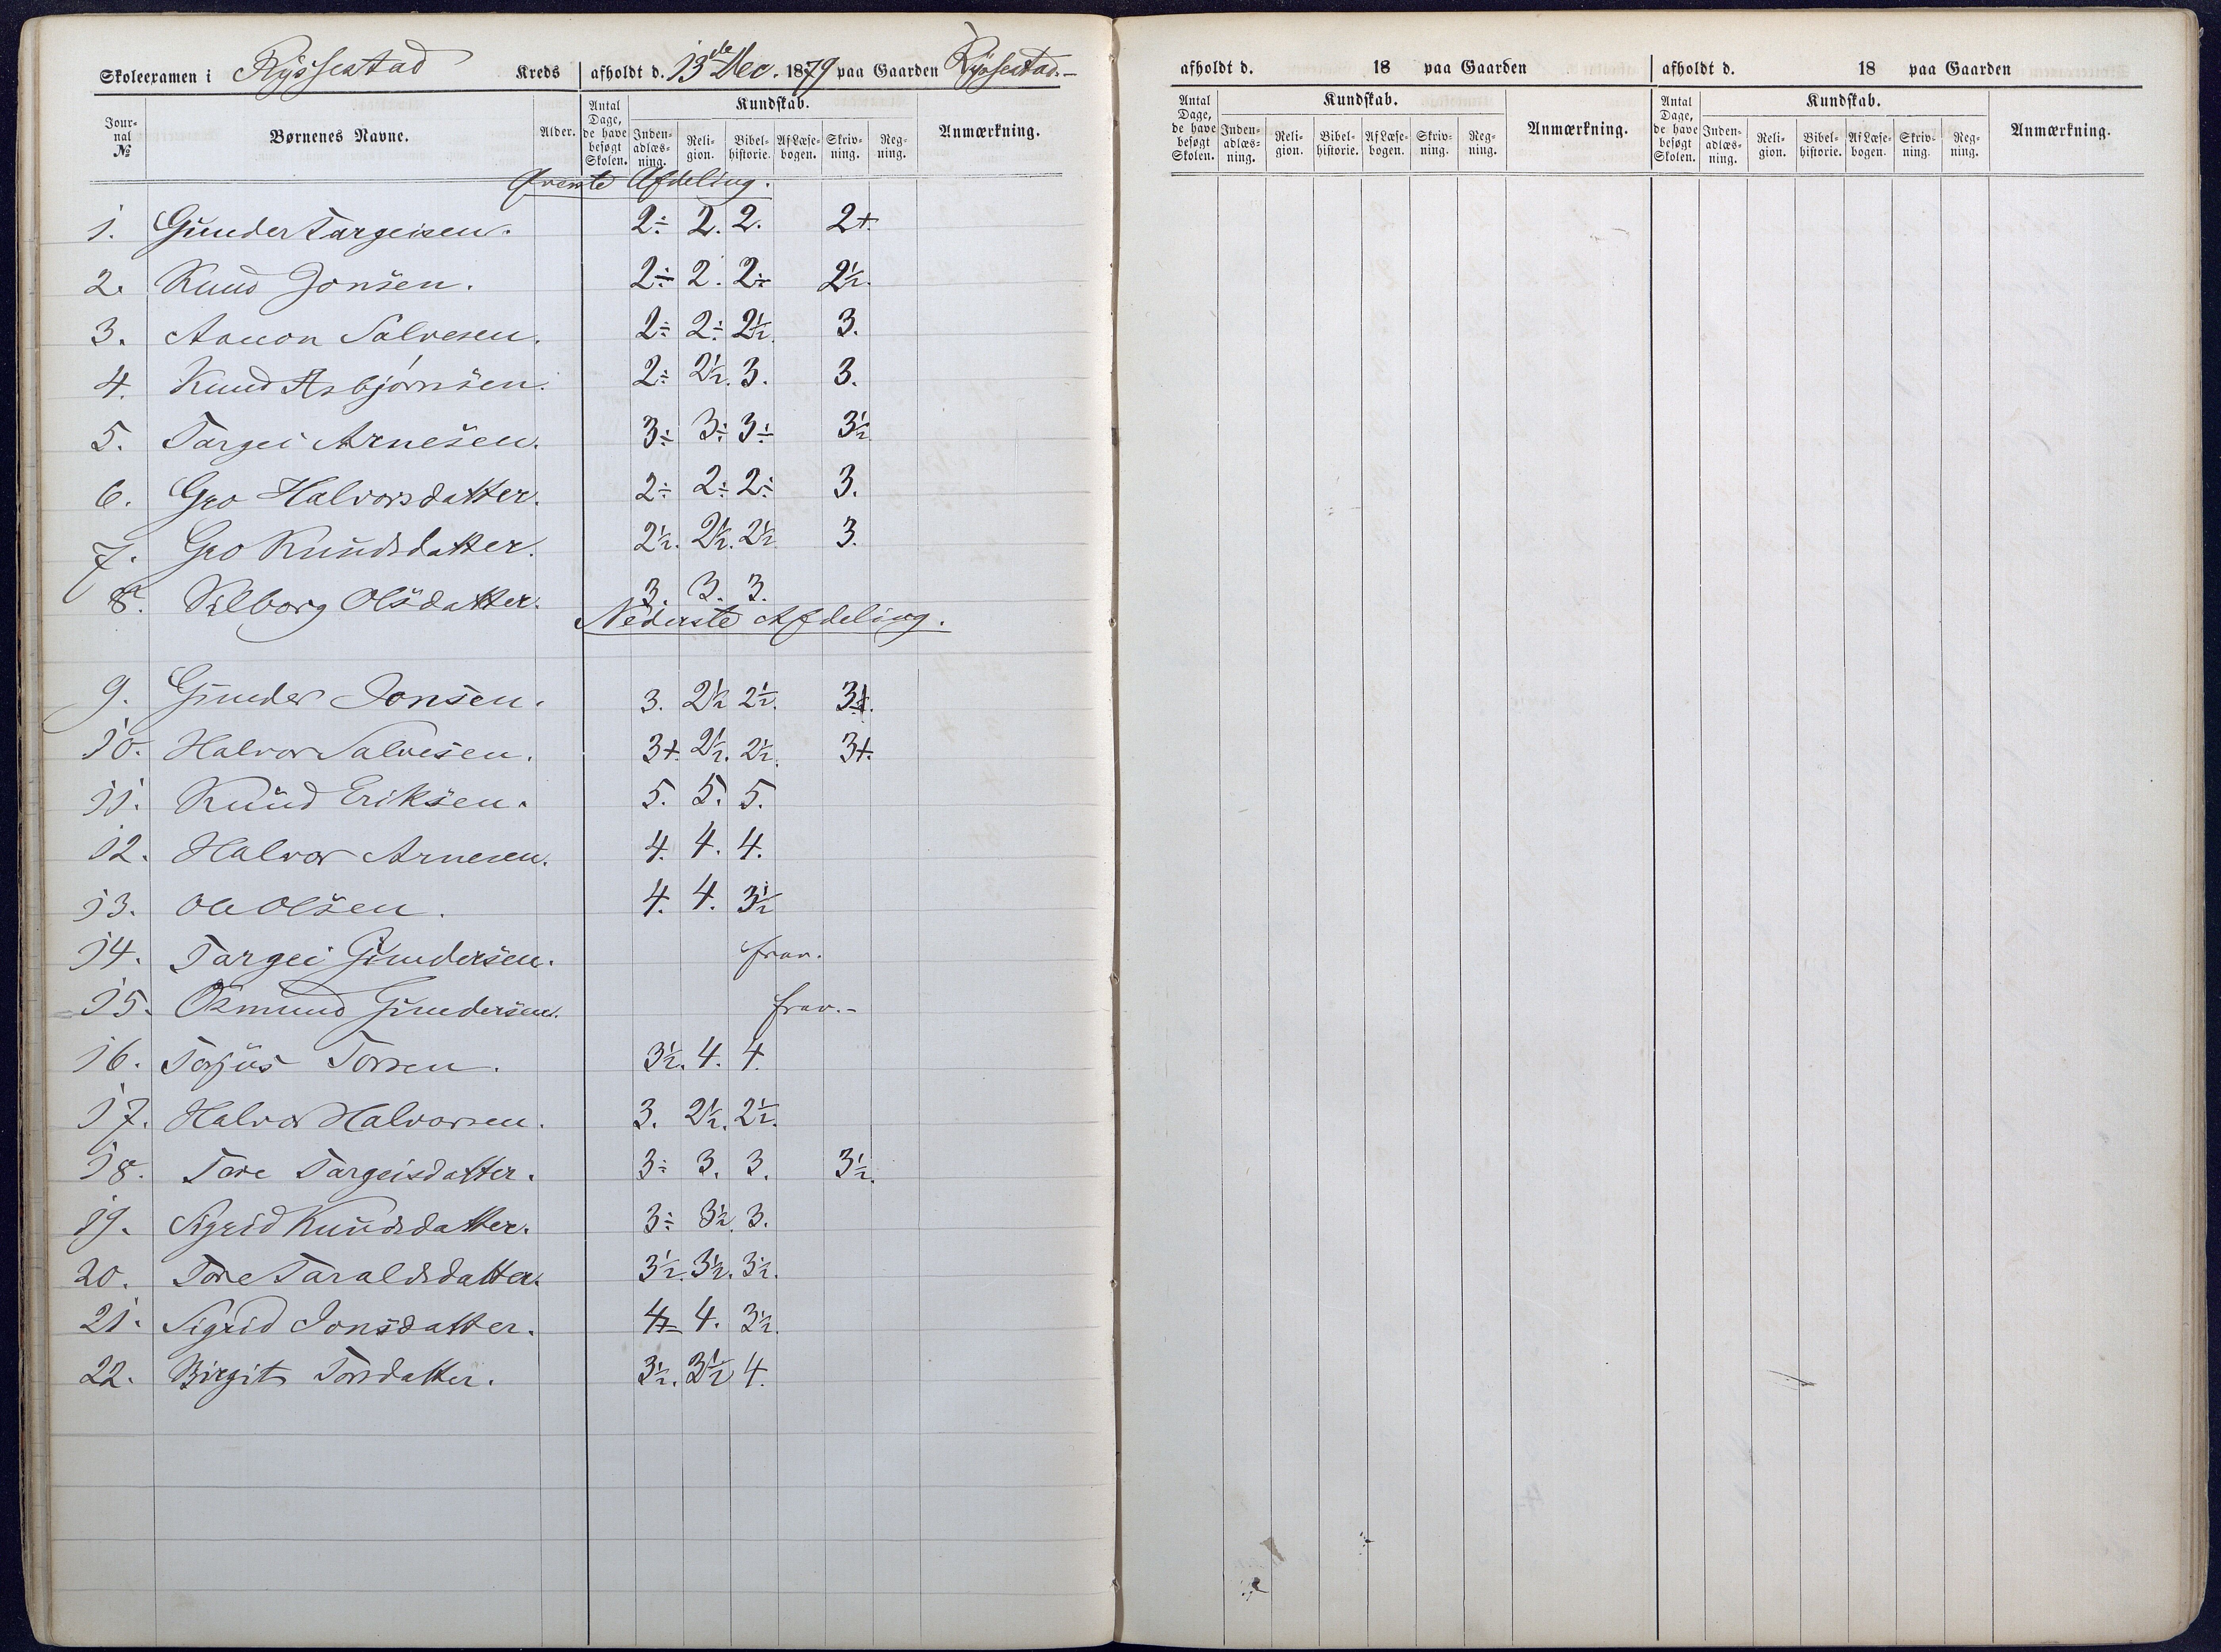 Skoleexamen i Ryssestad Kreds afholdt d. 13de Dec. 1879 paa Gaarden Ryssestad.-
Jour-nal № Børnenes Navne. Alder. Antal Dage, de have besøgt Skolen. Kundskab. Inden-adlæs-ning. Reli-gion. Bibel-historie. Af Læse-bogen. Skriv-ning. Reg-ning. Anmærkning.
Øverste Afdeling.
1. Gunder Targeisen. 2÷ 2. 2. 2+
2. Knud Jonsen. 2÷ 2. 2÷ 2½.
3. Aanon Salvesen. 2÷ 2÷ 2½. 3.
4. Knud Asbjørnsen. 2÷ 2½. 3. 3.
5. Targei Arnesen. 3÷ 3÷ 3÷ 3½
6. Gro Halvorsdatter. 2÷ 2÷ 2÷ 3.
7. Gro Knudsdatter. 2½. 2½. 2½ 3.
8. Olsdatter. 3. 3. 3.
Nederste Afdeling.
9. Gunder Jonsen. 3. 2½ 2½.
10. Halvor Salvesen. 3+. 2½. 2½. 3+.
11. Knud Eriksen. 5. 5. 5.
12. Halvor Arnesen. 4. 4. 4.
13. Ole Olsen. 4. 4. 3½
14. Targei Gundersen. frav.
15. Osmund Gundersen. frav.-
16. Torjus Torsen. 3½. 4. 4.
17. Halvor Halvorsen. 3. 2½. 2½.
18. Tore Targeisdatter. 3÷ 3. 3. 3½.
19. Sigrid Knudsdatter. 3÷ 3½. 3.
20. Tore Taraldsdatter. 3½. 3½. 3½.
21. Sigrid Jonsdatter. 4. 3½.
22. Birgit Torsdatter. 3½. 3½ 4.
afholdt d. 18 paa Gaarden
Antal Dage, de have besøgt Skolen. Kundskab. Inden-adlæs-ning. Reli-gion. Bibel-historie. Af Læse-bogen. Skriv-ning. Reg-ning. Anmærkning.
afholdt d. 18 paa Gaarden
Antal Dage, de have besøgt Skolen. Kundskab. Inden-adlæs-ning. Reli-gion. Bibel-historie. Af Læse-bogen. Skriv-ning. Reg-ning. Anmærkning.